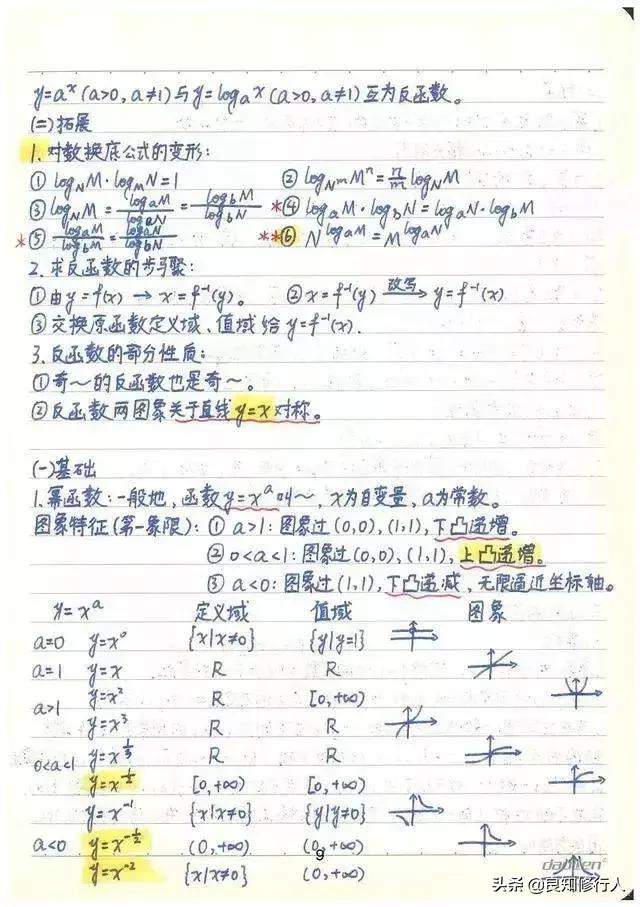 y=aˣ(a>0, a≠1)与y=logₐx(a>0, a≠1)互为反函数。
(二)拓展
1. 对数换底公式的变形:
① log_N M · log_M N = 1 ② log_{N^m} M^n = n/m log_N M
③ log_N M = log_a M / log_a N = log_b M / log_b N *④ log_a M · log_b N = log_a N · log_b M
*⑤ log_a M / log_b M = log_a N / log_b N **⑥ N^{log_a M} = M^{log_a N}
2. 求反函数的步骤:
① 由y=f(x) → x=f⁻¹(y)。 ② x=f⁻¹(y) 改写→ y=f⁻¹(x)
③ 交换原函数定义域、值域给y=f⁻¹(x).
3. 反函数的部分性质:
① 奇~的反函数也是奇~。
② 反函数两图象关于直线y=x对称。
(一)基础
1. 幂函数:一般地,函数y=xᵃ叫~, x为自变量, a为常数。
图象特征(第一象限): ① a>1: 图象过(0,0),(1,1),下凸递增。
② 0<a<1: 图象过(0,0),(1,1),上凸递增。
③ a<0: 图象过(1,1),下凸递减,无限逼近坐标轴。
y=xᵃ 定义域 值域 图象
a=0 y=x⁰ {x|x≠0} {y|y=1}
a=1 y=x R R
a>1 y=x² R [0,+∞)
y=x³ R R
0<a<1 y=x^{1/3} R R
y=x^{1/2} [0,+∞) [0,+∞)
y=x⁻¹ {x|x≠0} {y|y≠0}
a<0 y=x^{-1/2} (0,+∞) (0,+∞)
y=x⁻² {x|x≠0} (0,+∞)
9
头条 @良知修行人